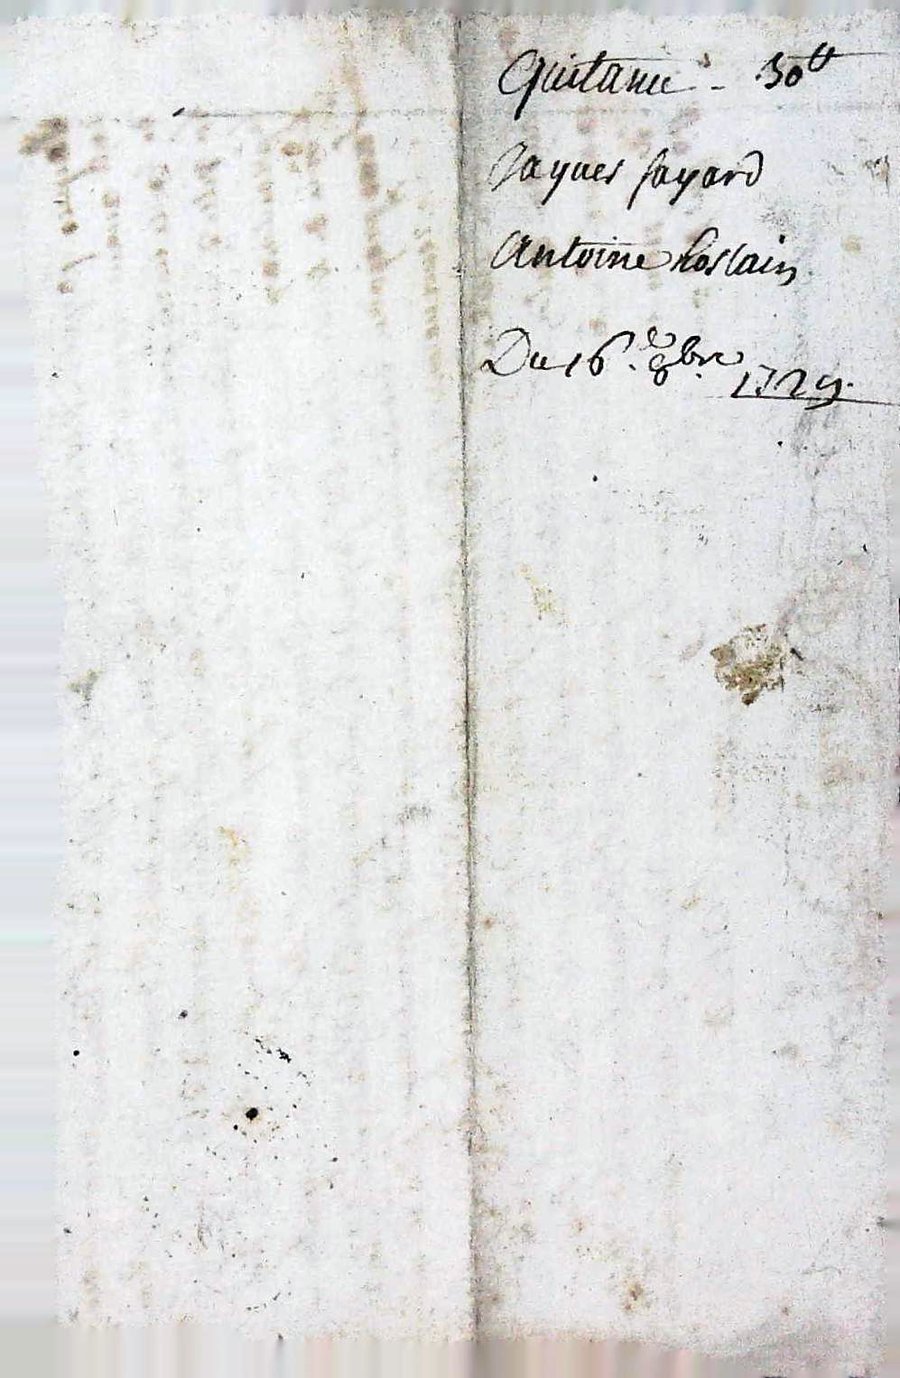 Quitance - 30ᵗᵗ
Jaques fayard
Antoine hoslain
Du 16.ᵉ 8bre 1729.